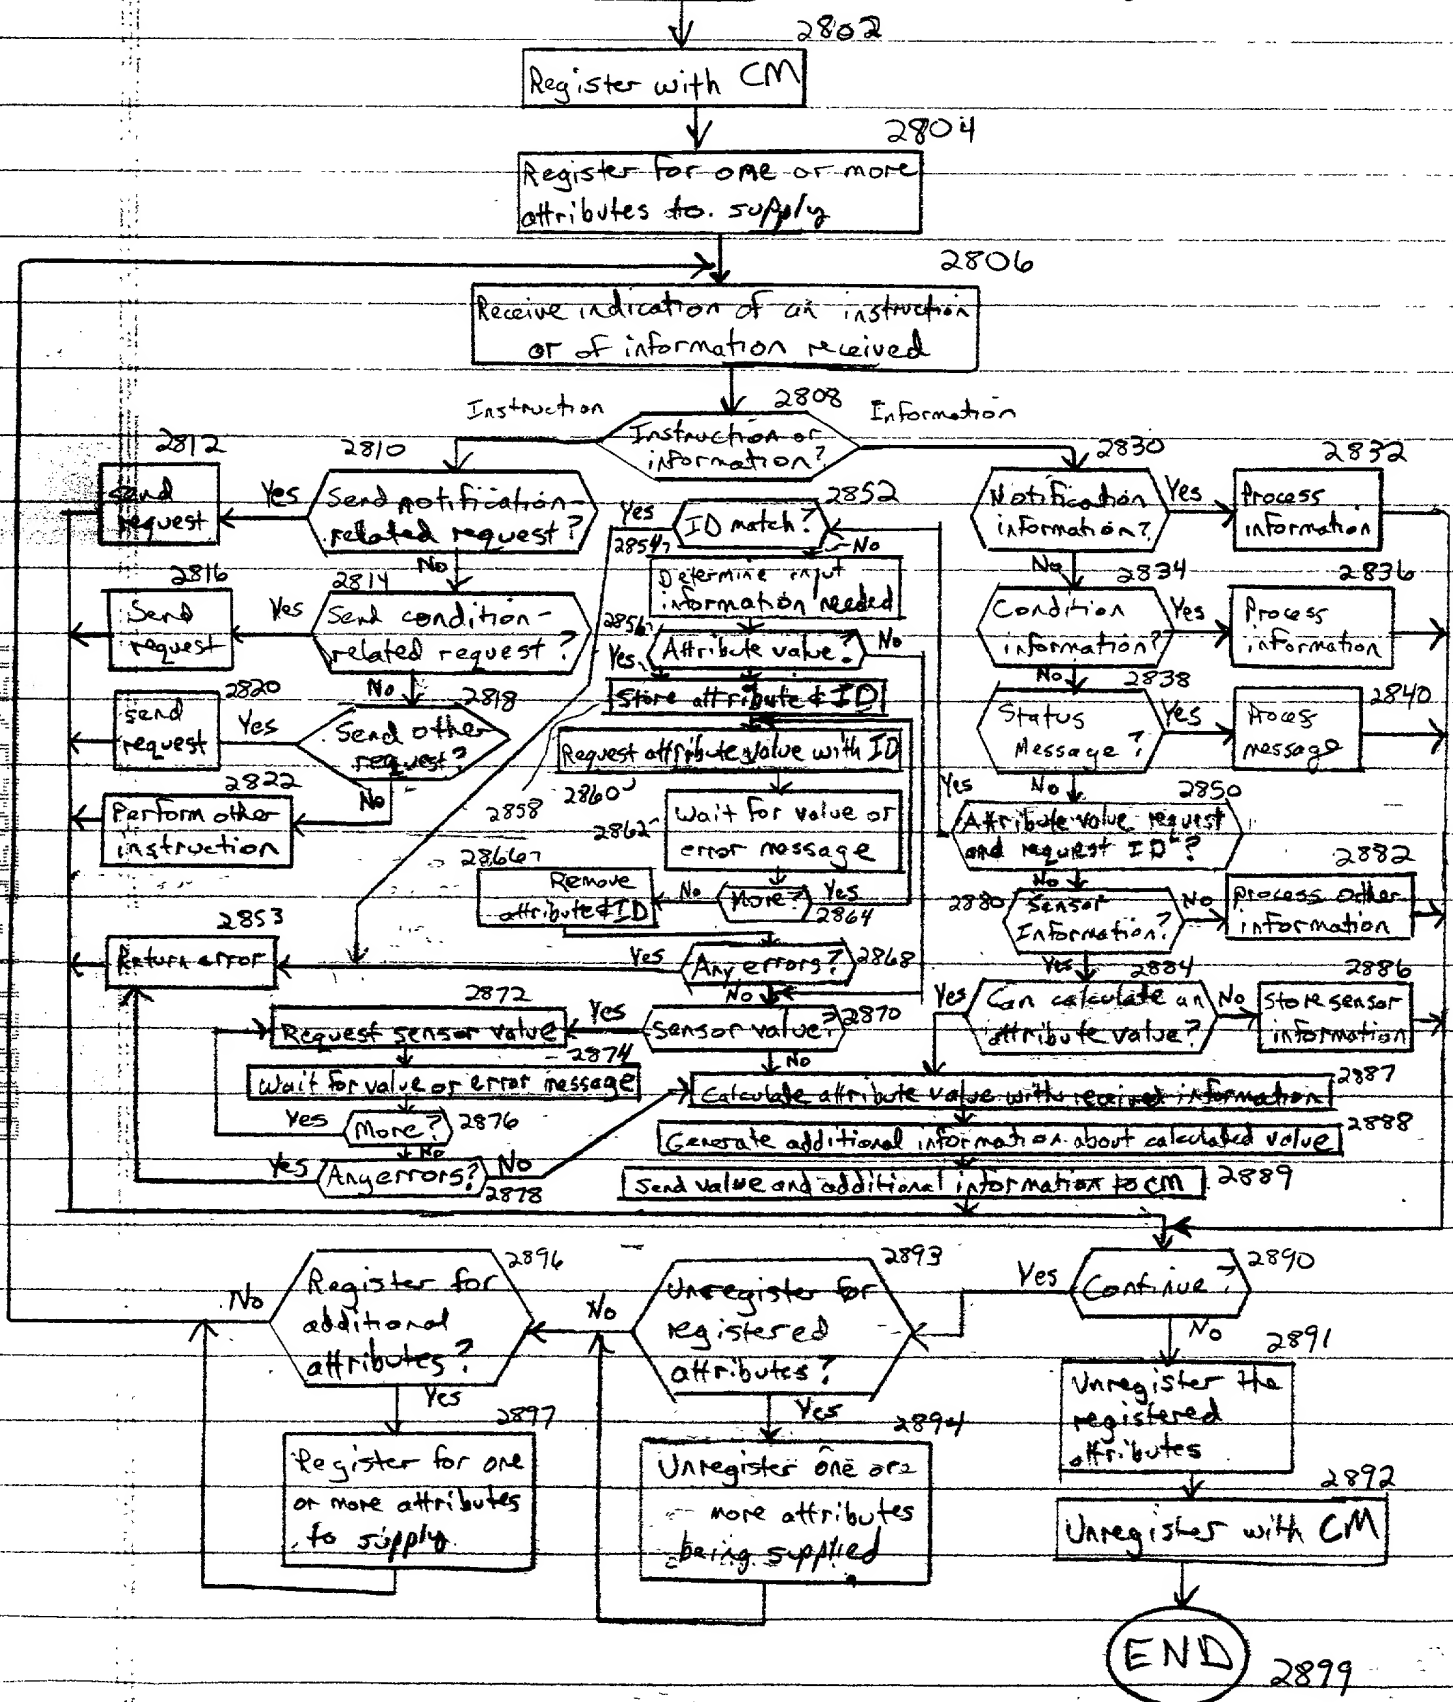 2802
Register with CM
2804
Register for one or more
attributes to supply
2806
Receive indication of an instruction
or of information received
2808
Instruction
Information
Instruction or
information?
2810
Yes
Send notification-
related request?
2812
Send
request
No
2814
Yes
Send condition-
related request?
2816
Send
request
No
2818
Yes
Send other
request?
2820
send
request
No
2822
Perform other
instruction
2853
Return error
2852
Yes
ID match?
No
2854
Determine input
information needed
2856
Yes
Attribute value?
No
Store attribute & ID
2858
Request attribute value with ID
2860
2862
Wait for value or
error message
2864
More?
Yes
No
2866
Remove
attribute & ID
Yes
Any errors?
2868
No
2870
Yes
Sensor value?
No
2872
Request sensor value
2874
Wait for value or error message
Yes
More?
2876
No
Yes
Any errors?
No
2878
2830
Notification
information?
Yes
2832
Process
information
No
2834
Condition
information?
Yes
2836
Process
information
No
2838
Status
Message?
Yes
2840
Process
message
No
2850
Yes
Attribute value request
and request ID?
No
2880
Sensor
Information?
No
2882
Process other
information
Yes
2884
Yes
Can calculate an
attribute value?
No
2886
Store sensor
information
2887
Calculate attribute value with received information
2888
Generate additional information about calculated value
2889
Send value and additional information to CM
2890
Continue?
Yes
No
2891
Unregister the
registered
attributes
2892
Unregister with CM
END
2899
2893
Unregister for
registered
attributes?
No
Yes
2894
Unregister one or
more attributes
being supplied
2896
Register for
additional
attributes?
No
Yes
2897
Register for one
or more attributes
to supply